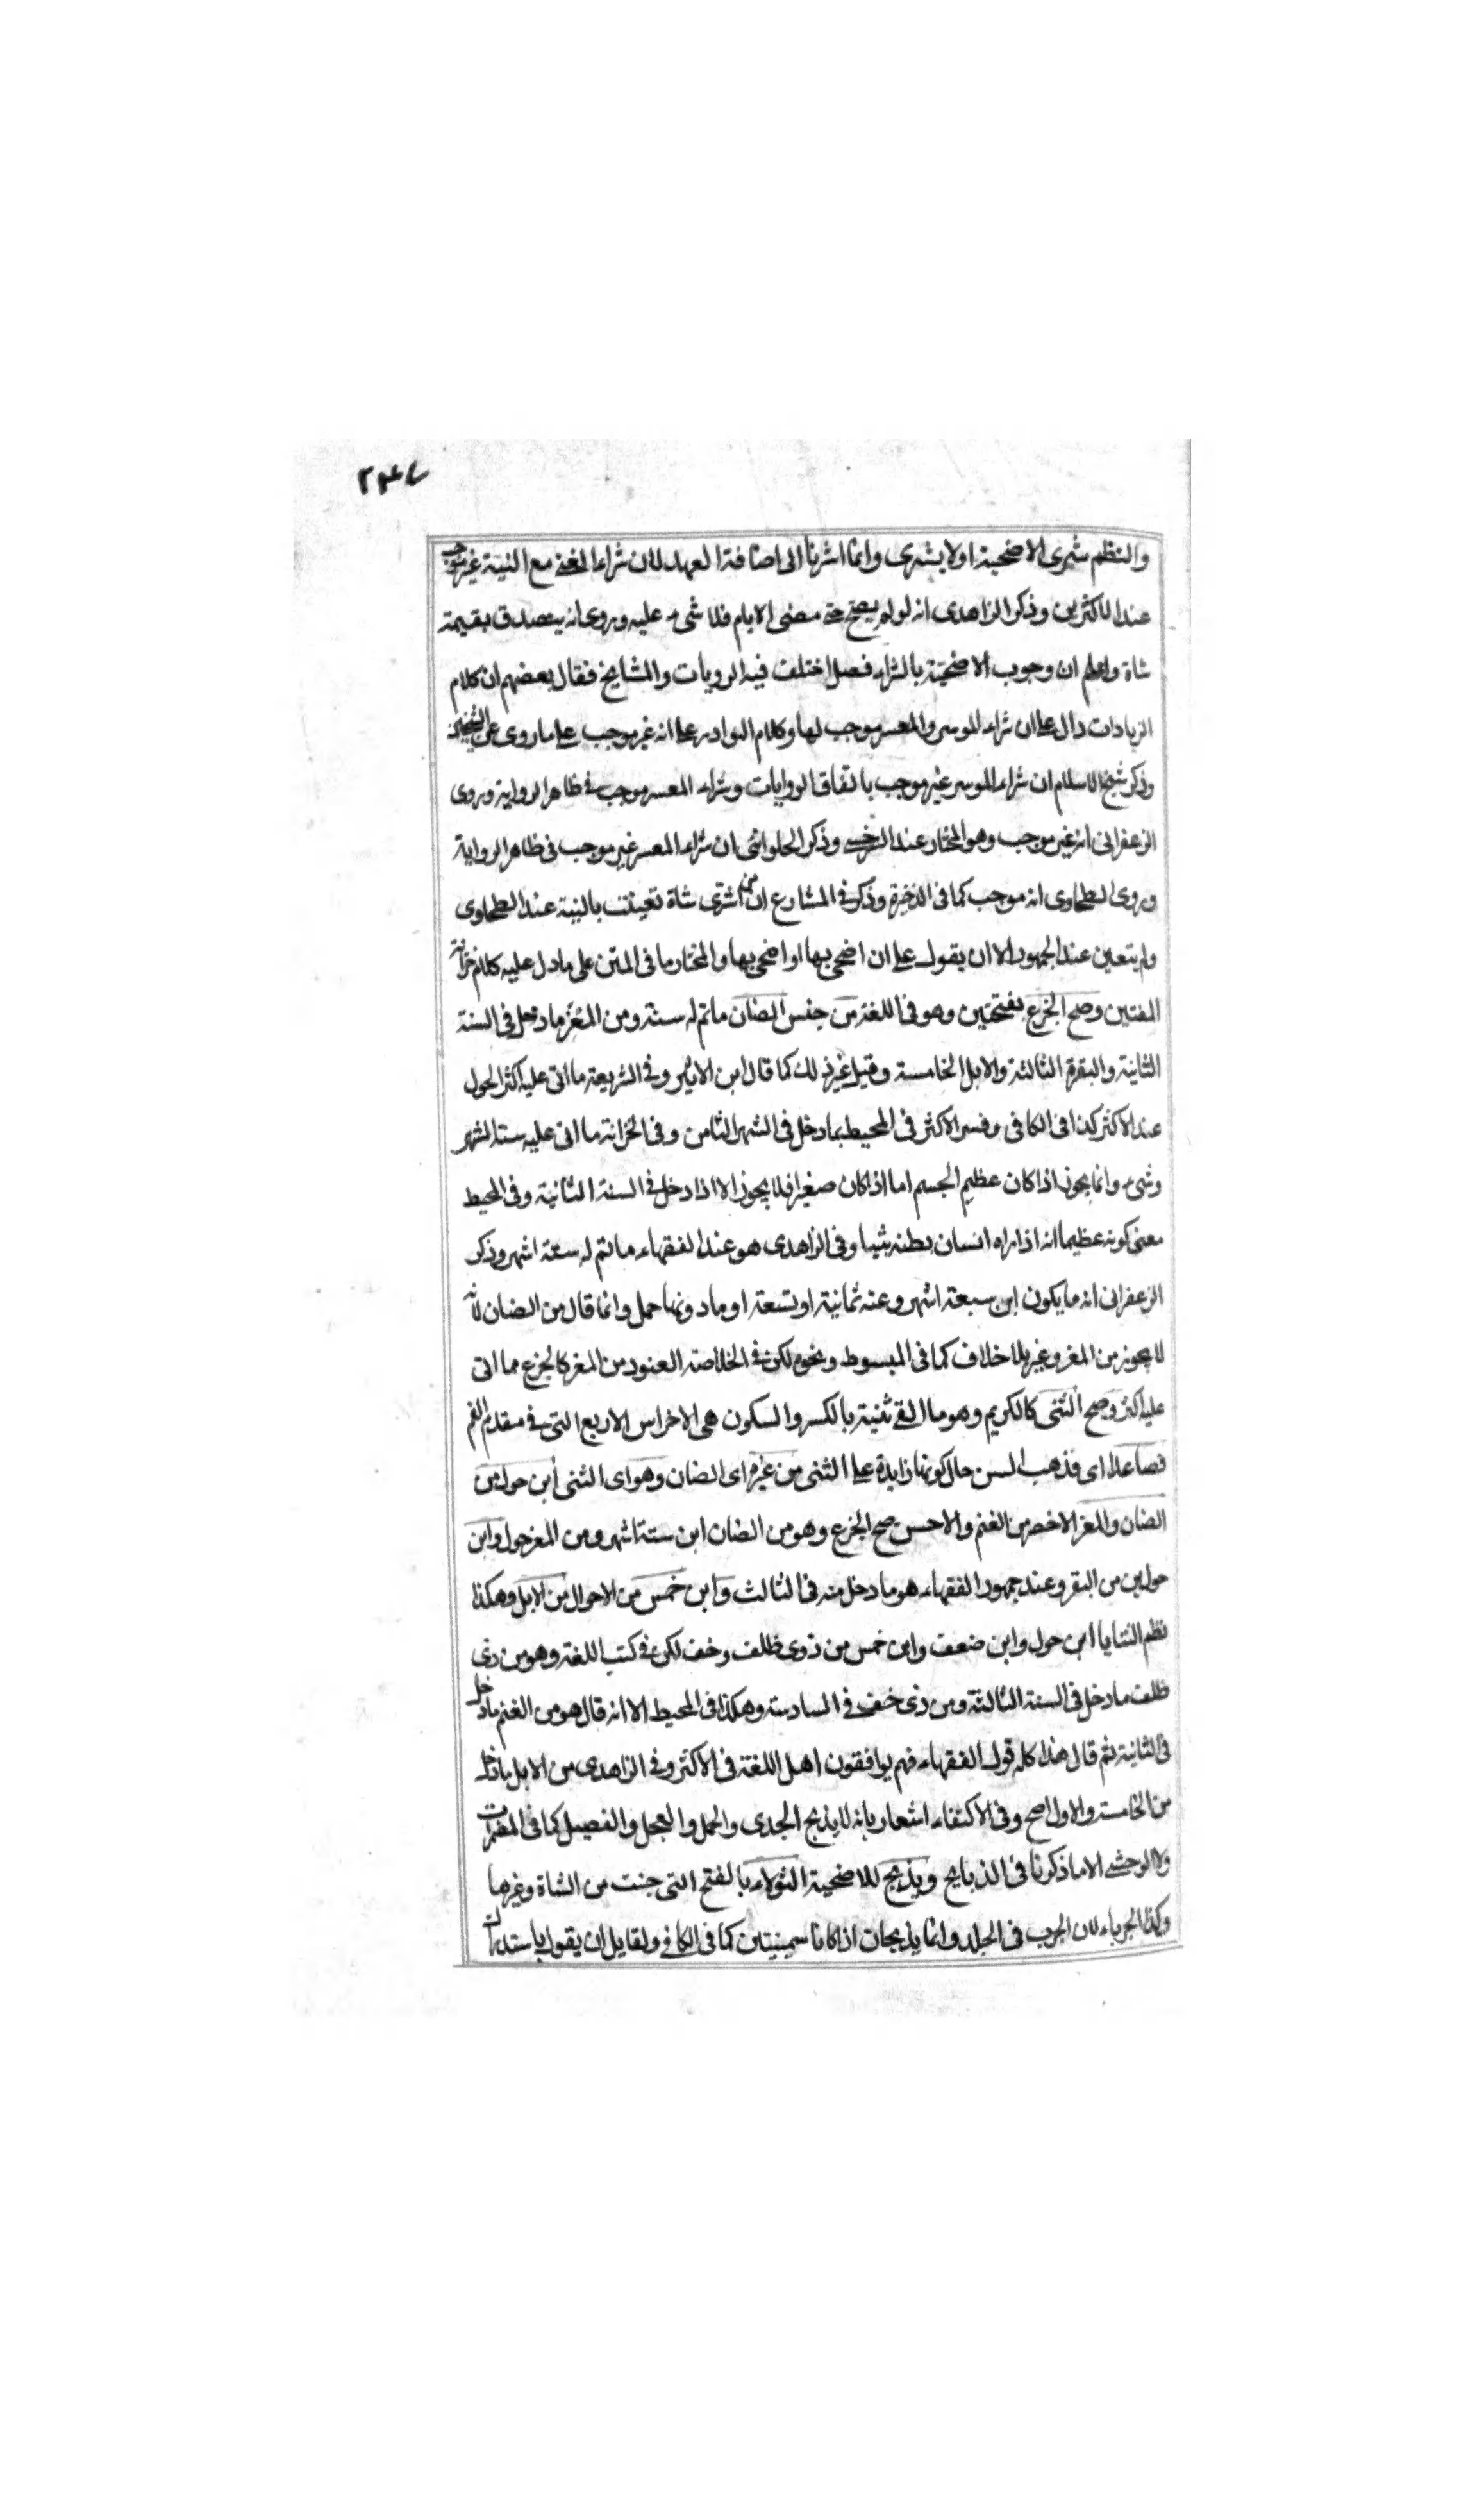 ٢٤٧
والنظم شرى الاضحية اولا يشترى وانما اشرنا الى اضافة العهد لان شراء الغنى مع النية غير موجب
عند الاكثرين وذكر الزاهدى انه لو لم يضح حتى مضى الايام فلا شىء عليه وروى انه يتصدق بقيمة
شاة واعلم ان وجوب الاضحية بالشراء فصل اختلف فيه الرويات والمشايخ فقال بعضهم ان كلام
الزيادات دال على ان شراء الموسر والمعسر موجب لها وكلام النوادر على انه غير موجب على ما روى عن الشيخين
وذكر شيخ الاسلام ان شراء الموسر غير موجب باتفاق الروايات وشراء المعسر موجب فى ظاهر الرواية وروى
الزعفرانى انه غير موجب وهو المختار عند السرخسى وذكر الحلوانى ان شراء المعسر غير موجب فى ظاهر الرواية
وروى الطحاوى انه موجب كما فى الذخيرة وذكر فى المشارع ان من اشترى شاة تعينت بالنية عند الطحاوى
ولم يتعين عند الجمهور الا ان يقول على ان اضحى بها او اضحى بها والمختار ما فى المتن على ما دل عليه كلام خزانة
المفتين وصح الجذع بفتحتين وهو فى اللغة من جنس الضان ما تم له سنة ومن المعز ما دخل فى السنة
الثانية والبقرة الثالثة والابل الخامسة وقيل غير ذلك كما قال ابن الاثير وفى الشريعة ما اتى عليه اكثر الحول
عند الاكثر كذا فى الكافى وفسر الاكثر فى المحيط بما دخل فى الشهر الثامن وفى الخزانة ما اتى عليه ستة اشهر
وشىء وانما يجوز اذا كان عظيم الجسم اما اذا كان صغيرا فلا يجوز الا اذا دخل فى السنة الثانية وفى المحيط
معنى كونه عظيما انه اذا راه انسان يظنه ثنيا وفى الزاهدى هو عند الفقهاء ما تم له ستة اشهر وذكر
الزعفرانى انه ما يكون ابن سبعة اشهر وعنه ثمانية او تسعة او ما دونها حمل وانما قال من الضان لانه
لا يجوز من المعز وغيره بلا خلاف كما فى المبسوط ونحوه لكن فى الخلاصة العتود من المعز كالجذع مما اتى
عليه اكثر وصح الثنى كالكريم وهو ما القى ثنية بالكسر والسكون هى الاضراس الاربع التى فى مقدم الفم
فصاعدا اى فذهب السن حال كونها زايدة على الثنى من غيره اى الضان وهو اى الثنى ابن حول من
الضان والمعز الاخصر من الغنم والاحسن صح الجذع وهو من الضان ابن ستة اشهر ومن المعز حول وابن
حولين من البقر وعند جمهور الفقهاء هو ما دخل منه فى الثالث وابن خمس من الاحوال من الابل وهكذا
نظم الثنايا ابن حول وابن ضعف وابن خمس من ذوى ظلف وخف لكن فى كتب اللغة وهو من ذى
ظلف ما دخل فى السنة الثالثة ومن ذى خف فى السادسة وهكذا فى المحيط الا انه قال هو من الغنم ما دخل
فى الثانية ثم قال هذا كله قول الفقهاء فهم يوافقون اهل اللغة فى الاكثر وفى الزاهدى من الابل ما دخل
من الخامسة والاول اصح وفى الاكتفاء اشعار بانه لا يذبح الجدى والحمل والعجل والفصيل كما فى المضمرات
ولا الوحشى الا ما ذكرنا فى الذبايح ويذبح للاضحية الثولاء بالفتح التى جنت من الشاة وغيرها
وكذا الجرباء لان الجرب فى الجلد وانما يذبحان اذا كانا سمينيتين كما فى الكافى ولقايل ان يقول باستدراك